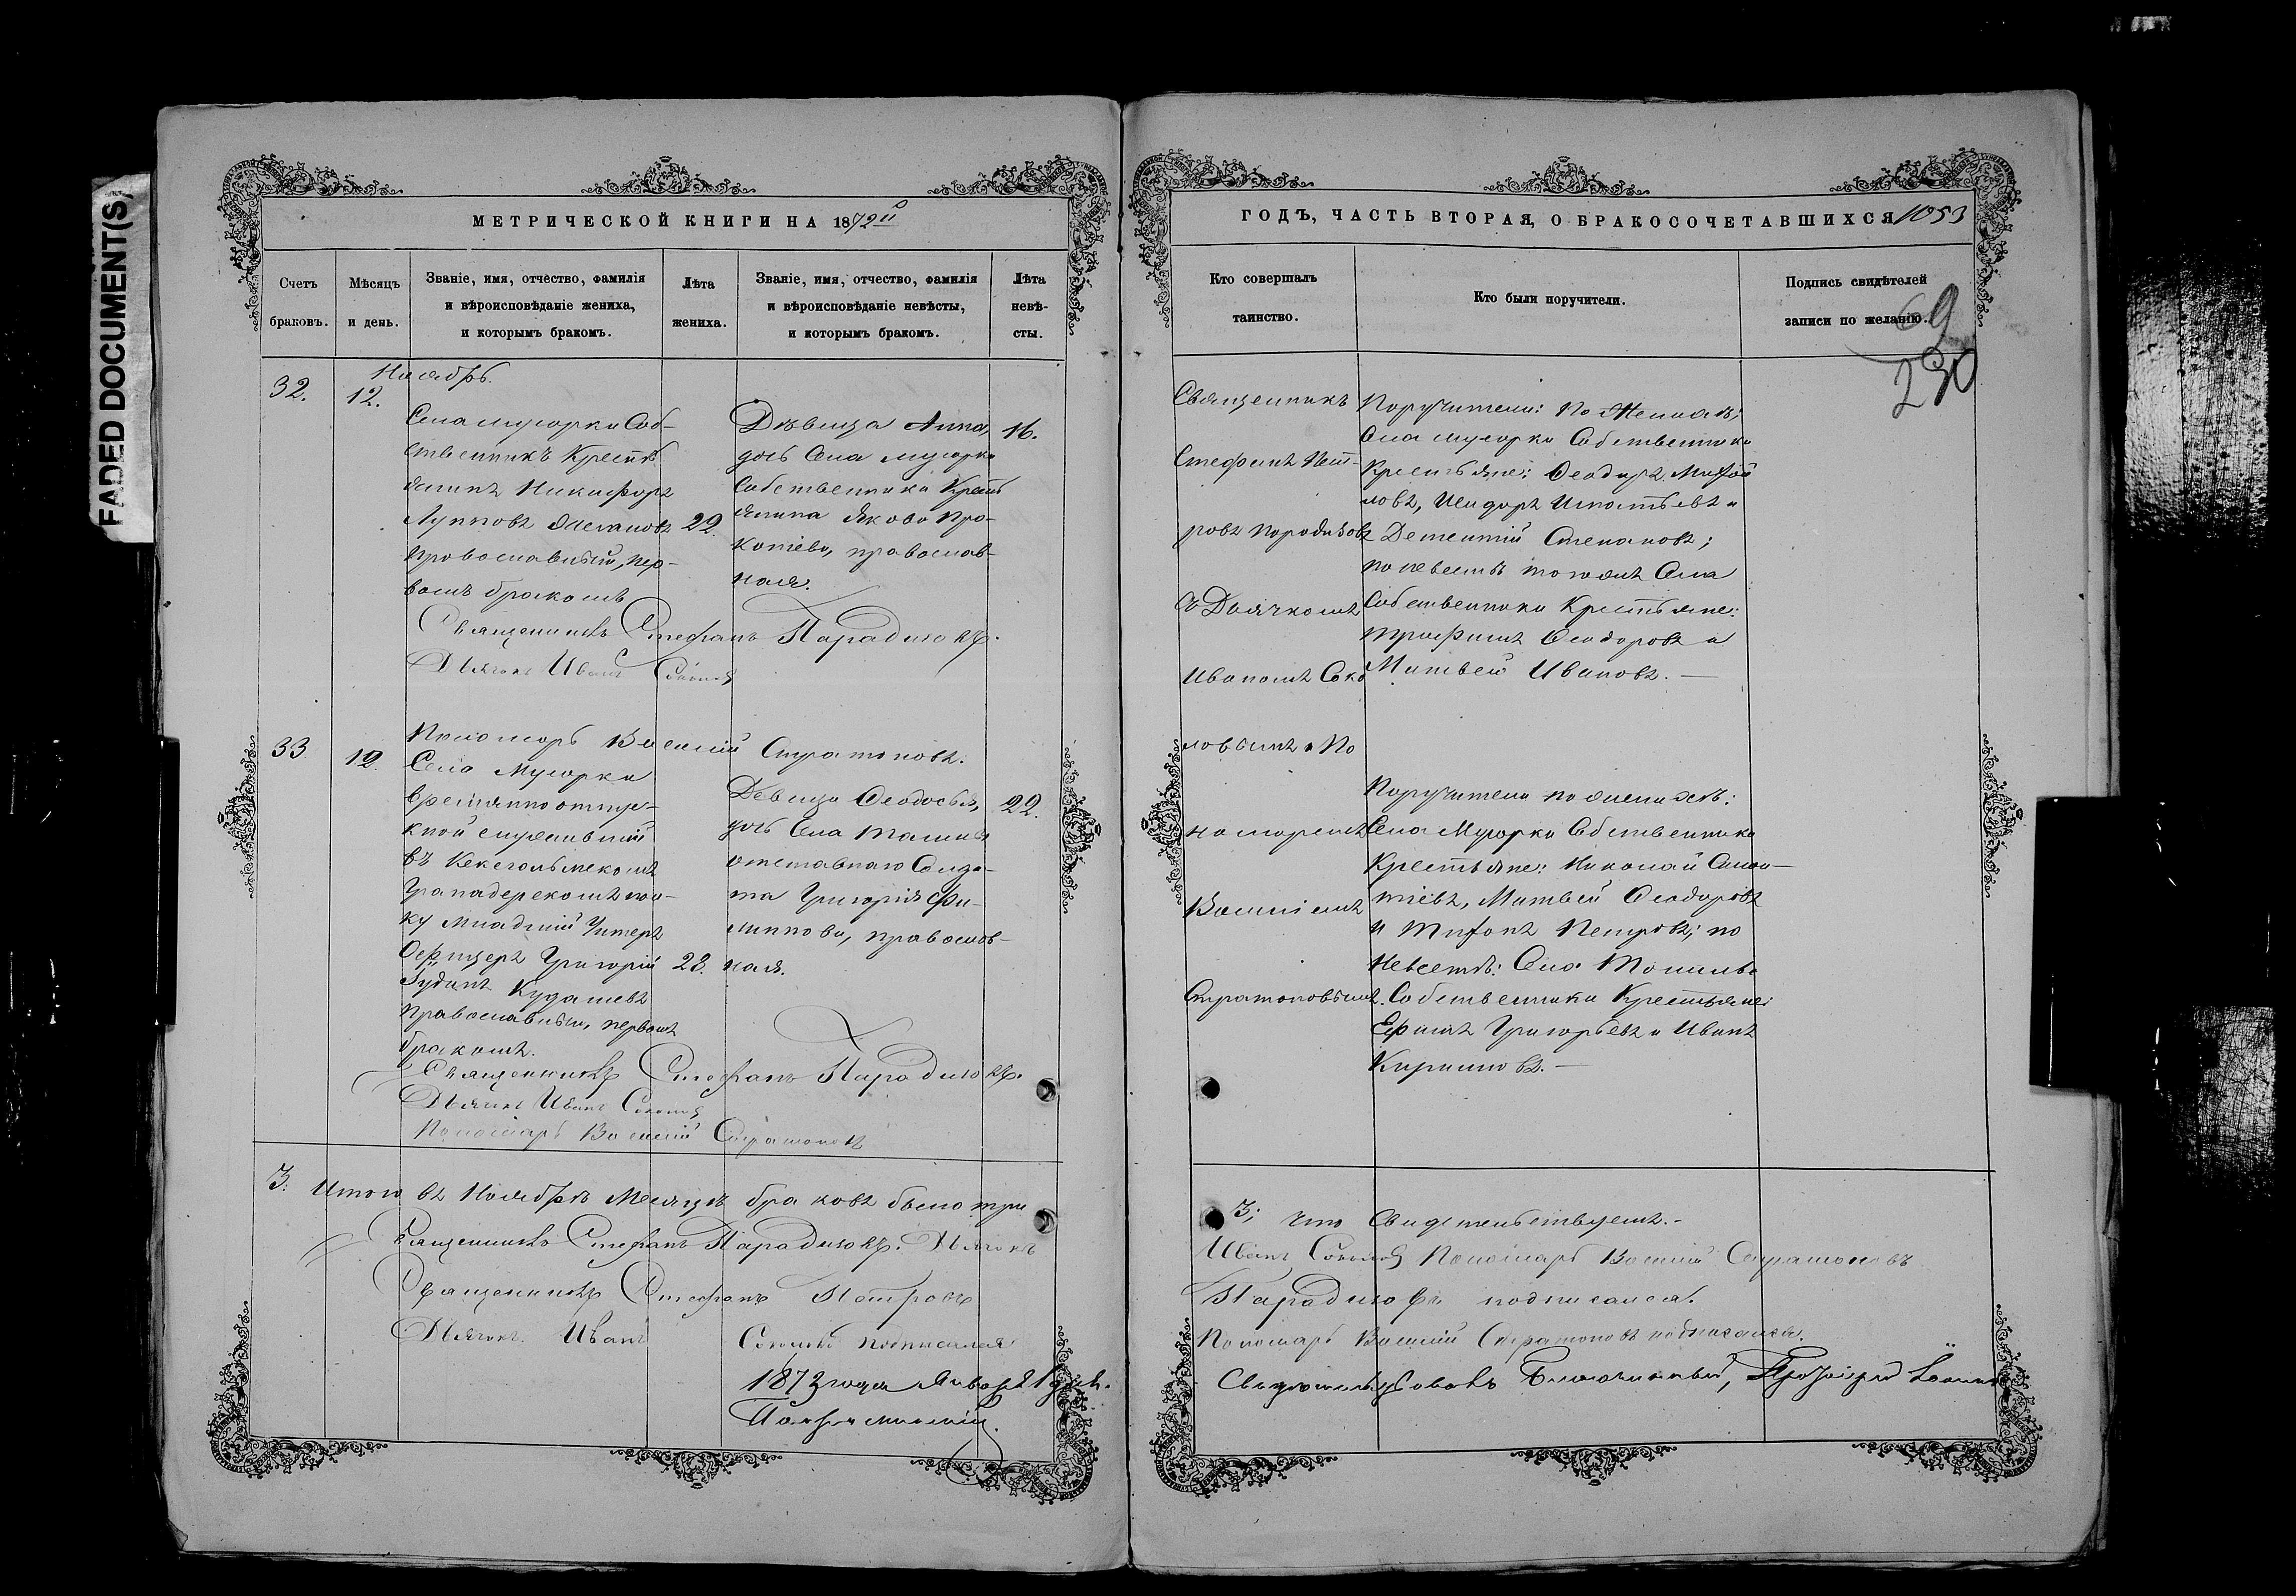 FADED DOCUMENT(S)
МЕТРИЧЕСКОЙ КНИГИ НА 1872й
Счетъ браковъ.
Мѣсяцъ и день.
Званіе, имя, отчество, фамилія
и вѣроисповѣданіе жениха,
и которымъ бракомъ.
Лѣта
жениха.
Званіе, имя, отчество, фамилія
и вѣроисповѣданіе невѣсты,
и которымъ бракомъ.
Лѣта
невѣ-
сты.
Ноябрь.
32.
12.
Села Мусорки Соб-
ственникъ Кресть
янинъ Никифоръ
Лупповъ
22.
Православный, пер-
вымъ бракомъ
Дѣвица Анна,
дочь Села Мусорки
Собственника Кресть
янина Якова Про-
православ-
ная.
16.
Священникъ Стефанъ Парадизовъ.
Дьячокъ Иванъ Соколовъ
Пономарь Василій Стратоновъ.
33
12.
Села Мусорки
временно отпу-
скной служившій
въ Кексгольмскомъ
Гренадерскомъ пол-
ку Младшій Унтеръ
Офицеръ Григорій
Кудашевъ
Православный, первымъ
бракомъ.
28.
Дѣвица Ѳеодосья,
дочь Села
отставнаго Солда-
та Григорія Фи-
липпова, православ-
ная.
22.
Священникъ Стефанъ Парадизовъ.
Дьячокъ Иванъ Соколовъ
Пономарь Василій Стратоновъ
3. Итого въ Ноябрѣ Месяцѣ браковъ было три
Священникъ Стефанъ Парадизовъ. Дьячокъ
Священникъ Стефанъ Петровъ
Дьячокъ Иванъ Соколовъ подписался
1873 года Января 1 дня.
ГОДЪ, ЧАСТЬ ВТОРАЯ, О БРАКОСОЧЕТАВШИХСЯ 1053
Кто совершалъ
таинство.
Кто были поручители.
Подпись свидѣтелей
записи по желанію.
69
230
Священникъ
Стефанъ Пет-
ровъ Парадизовъ
съ Дьячкомъ
Иваномъ Соко
ловымъ и По
номаремъ
Василіемъ
Стратоновымъ.
Поручители: По Женихѣ;
Села Мусорки Собственники
Крестьяне: Ѳеодоръ
Исидоръ Игнатьевъ и
Степановъ;
по невестѣ тогожъ Села
Собственники Крестьяне:
Трофимъ Ѳеодоровъ и
Матвей Ивановъ. —
Поручители по женихѣ:
Села Мусорки Собственники
Крестьяне: Николай
Матвей Ѳеодоровъ
и Тихонъ Петровъ; по
Невестѣ: Села
Собственники Крестьяне:
Ефимъ Григорьевъ и Иванъ
Кириловъ. —
3; что Свидетельствуемъ. -
Иванъ Соколовъ Пономарь Василій Стратоновъ
Парадизовъ подписался.
Пономарь Василій Стратоновъ подписался.
Свидѣтельствовалъ Благочинный,